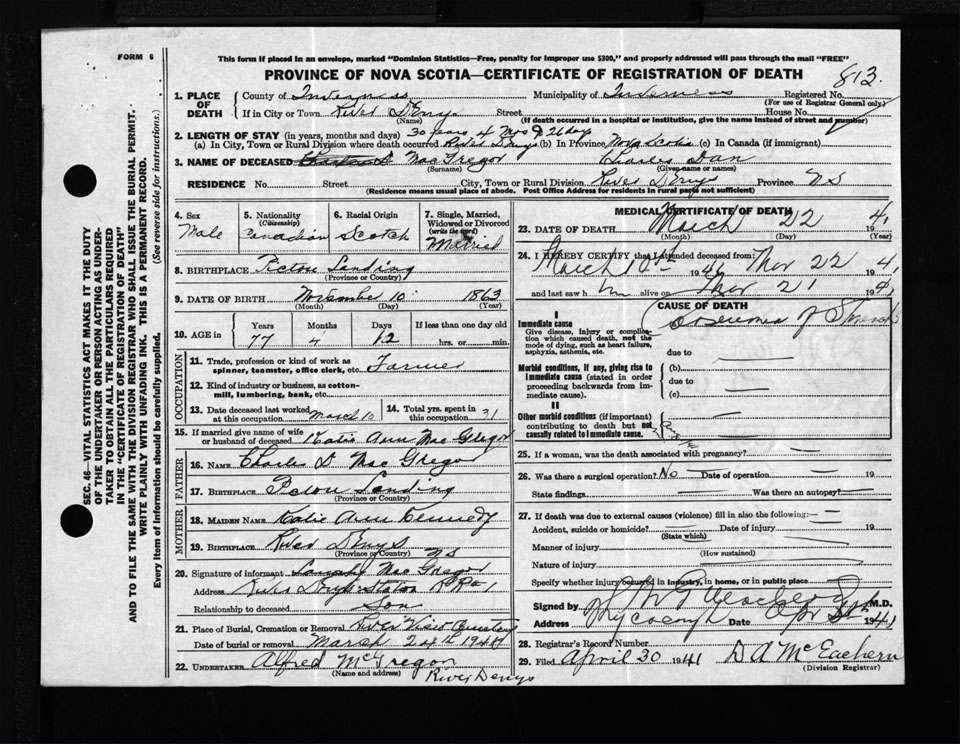 FORM 6
This form if placed in an envelope, marked "Dominion Statistics—Free, penalty for improper use $300," and properly addressed will pass through the mail "FREE"
PROVINCE OF NOVA SCOTIA—CERTIFICATE OF REGISTRATION OF DEATH
813
1. PLACE OF DEATH
County of Inverness Municipality of Inverness Registered No.
(For use of Registrar General only)
If in City or Town River Denys Street House No.
(Name) (If death occurred in a hospital or institution, give the name instead of street and number)
2. LENGTH OF STAY (in years, months and days) 30 years 4 Mos & 26 days
(a) In City, Town or Rural Division where death occurred River Denys (b) In Province Nova Scotia (c) In Canada (if immigrant)
3. NAME OF DECEASED Mac Gregor Charles Dan
(Surname) (Given name or names)
RESIDENCE No. Street City, Town or Rural Division River Denys Province NS
(Residence means usual place of abode. Post Office Address for residents in rural parts not sufficient)
4. Sex Male
5. Nationality (Citizenship) Canadian
6. Racial Origin Scotch
7. Single, Married, Widowed or Divorced (write the word) Married
8. BIRTHPLACE Pictou Landing
(Province or Country)
9. DATE OF BIRTH November 10 1863
(Month) (Day) (Year)
10. AGE in Years Months Days If less than one day old
77 4 12 hrs. or min.
OCCUPATION
11. Trade, profession or kind of work as spinner, teamster, office clerk, etc. Farmer
12. Kind of industry or business, as cotton-mill, lumbering, bank, etc.
13. Date deceased last worked at this occupation March 10
14. Total yrs. spent in this occupation 31
15. If married give name of wife or husband of deceased Katie Ann Mac Gregor
FATHER
16. NAME Charles D Mac Gregor
17. BIRTHPLACE Pictou Landing
(Province or Country)
MOTHER
18. MAIDEN NAME Katie Ann Kennedy
19. BIRTHPLACE River Denys NS
(Province or Country)
20. Signature of informant Mac Gregor
Address River Denys Station RR 1
Relationship to deceased Son
21. Place of Burial, Cremation or Removal River View Cemetery
Date of burial or removal March 24th 1941
22. UNDERTAKER Alfred McGregor
(Name and address) River Denys
MEDICAL CERTIFICATE OF DEATH
23. DATE OF DEATH March 22 41
(Month) (Day) (Year)
24. I HEREBY CERTIFY that I attended deceased from:
March 1941 to Mar 22 1941
and last saw h im alive on Mar 21 1941
CAUSE OF DEATH
I
Immediate cause
Give disease, injury or complication which caused death, not the mode of dying, such as heart failure, asphyxia, asthenia, etc.
of Stomach
due to
Morbid conditions, if any, giving rise to immediate cause (stated in order proceeding backwards from immediate cause).
(b)
due to
(c)
II
Other morbid conditions (if important) contributing to death but not causally related to immediate cause.
25. If a woman, was the death associated with pregnancy?
26. Was there a surgical operation? No Date of operation 19
State findings Was there an autopsy?
27. If death was due to external causes (violence) fill in also the following:
Accident, suicide or homicide? Date of injury 19
(State which)
Manner of injury
(How sustained)
Nature of injury
Specify whether injury occurred in industry, in home, or in public place
Signed by M.D.
Address Whycocomagh Date 1941
28. Registrar's Record Number
29. Filed April 30 1941 D A McEachern
(Division Registrar)
SEC. 46—VITAL STATISTICS ACT MAKES IT THE DUTY OF THE UNDERTAKER OR PERSON ACTING AS UNDERTAKER TO OBTAIN ALL THE PARTICULARS REQUIRED IN THE "CERTIFICATE OF REGISTRATION OF DEATH" AND TO FILE THE SAME WITH THE DIVISION REGISTRAR WHO SHALL ISSUE THE BURIAL PERMIT.
WRITE PLAINLY WITH UNFADING INK. THIS IS A PERMANENT RECORD.
Every item of information should be carefully supplied. (See reverse side for instructions.)